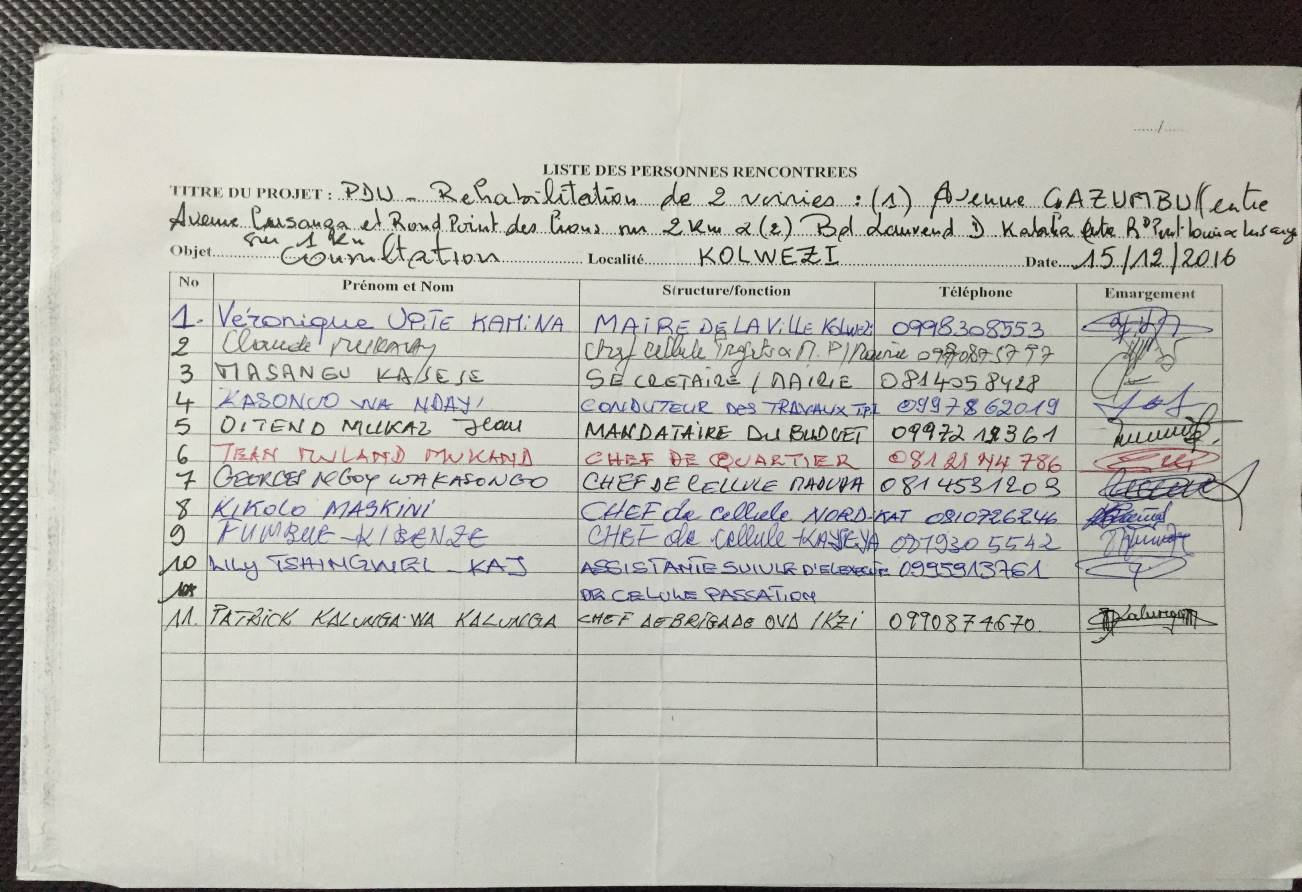 ....../......
LISTE DES PERSONNES RENCONTREES
TITRE DU PROJET : PDU - Rehabilitation de 2 voiries : (1) Avenue GAZUMBU (entre
Avenue Lusanga et Rond Point des Lions sur 2 Km & (2) Bd Laurend D Kabila entre Rd Point
sur 1 Km
Objet Consultation Localité KOLWEZI Date 15/12/2016
No Prénom et Nom Structure/fonction Téléphone Emargement
1. Véronique UPITE KAMINA MAIRE DE LA VILLE Kolwezi 0998308553
2 Claude Chef Cellule
3 MASANGU KASESE SECRETAIRE / MAIRIE 0814058428
4 KASONGO WA NDAYI CONDUTEUR DES TRAVAUX TPI 0997862019
5 DITEND MUKAZ Jean MANDATAIRE DU BUDGET
6 JEAN MULAND MUKAND CHEF DE QUARTIER
7 GEORGES NGOY WA KASONGO CHEF DE CELLULE 0814531209
8 KIKOLO MASKINI CHEF de cellule NORD-KAT 0810726246
9 CHEF de cellule KAYEYA
10 LILY TSHINGWEL-KAJ ASSISTANTE 0995913761
DE CELULE PASSATION
11. PATRICK KALUNGA-WA KALUNGA CHEF DE BRIGADE OVD /KZI 0990874670 Kalunga